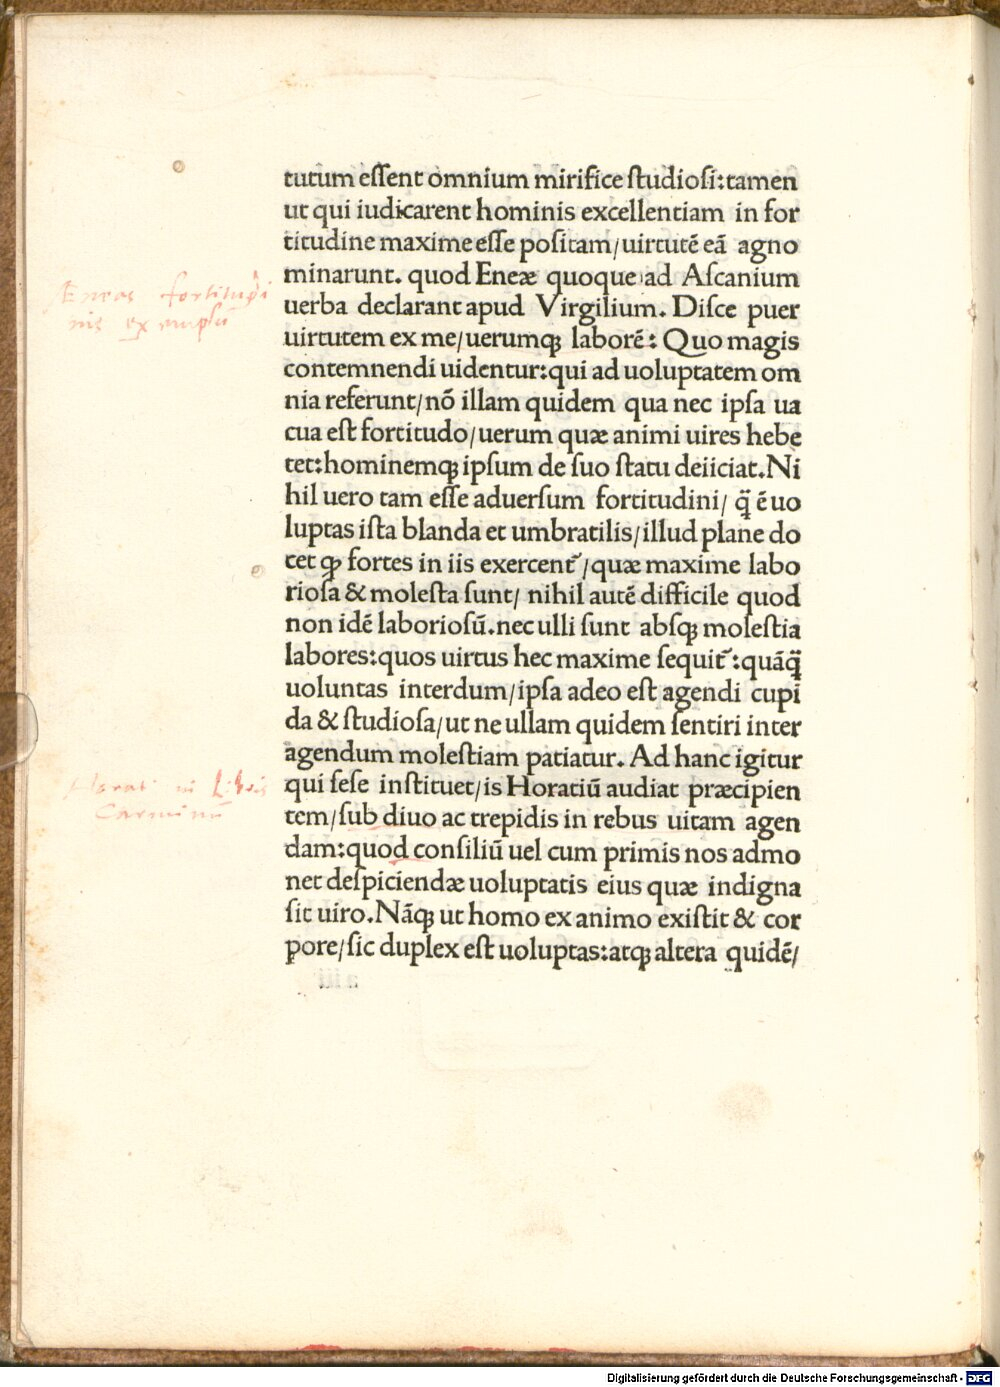 tutum eſſent omnium mirifice ſtudioſi:tamen
ut qui iudicarent hominis excellentiam in for
titudine maxime eſſe poſitam/uirtutẽ eã agno
minarunt. quod Eneæ quoque ad Aſcanium
uerba declarant apud Virgilium. Diſce puer
uirtutem ex me/uerumqꝫ laborẽ: Quo magis
contemnendi uidentur:qui ad uoluptatem om
nia referunt/nõ illam quidem qua nec ipſa ua
cua eſt fortitudo/uerum quæ animi uires hebe
tet:hominemqꝫ ipſum de ſuo ſtatu deiiciat.Ni
hil uero tam eſſe aduerſum fortitudini/ q̃ ẽ uo
luptas iſta blanda et umbratilis/illud plane do
cet ꝙ fortes in iis exercent᷑/quæ maxime labo
rioſa & moleſta ſunt/ nihil autẽ difficile quod
non idẽ laborioſũ.nec ulli ſunt abſqꝫ moleſtia
labores:quos uirtus hec maxime ſequit᷑:quãq̃
uoluntas interdum/ipſa adeo eſt agendi cupi
da & ſtudioſa/ut ne ullam quidem ſentiri inter
agendum moleſtiam patiatur. Ad hanc igitur
qui ſeſe inſtituet/is Horatiũ audiat præcipien
tem/ſub diuo ac trepidis in rebus uitam agen
dam:quod conſiliũ uel cum primis nos admo
net deſpiciendæ uoluptatis eius quæ indigna
ſit uiro.Nãqꝫ ut homo ex animo exiſtit & cor
pore/ſic duplex eſt uoluptas:atqꝫ altera quidẽ/
Æneas fortitudi
nis exemplũ
Horati in Libris
Carminũ
Digitalisierung gefördert durch die Deutsche Forschungsgemeinschaft - DFG